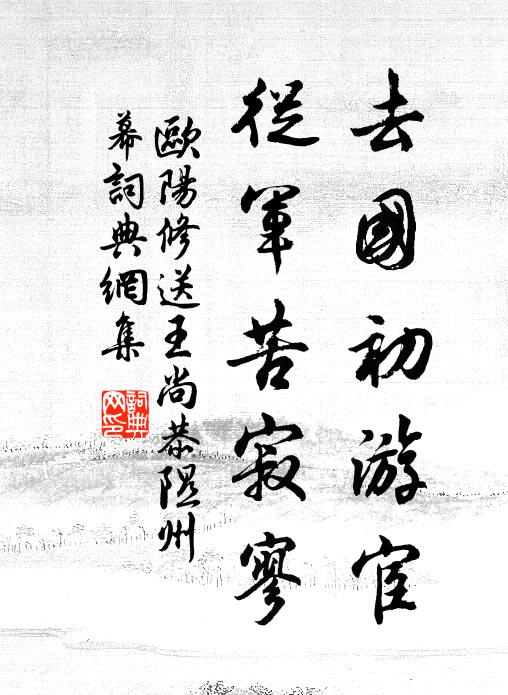 去國初游宦
從軍苦寂寥
歐陽修送王尚恭隰州
幕詞典網集
詞典網印